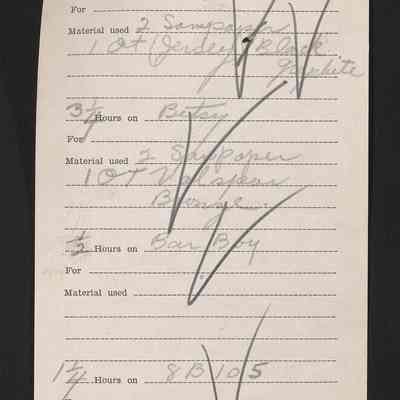 For
Material used 2 Sanpaper
1 Qt Jersey Black
Graphite
3 1/4 Hours on Betsy
For
Material used 2 Sanpaper
1 QT Valspar
Bronze
1/2 Hours on Bar Boy
For
Material used
1 1/4 Hours on 8 B 105